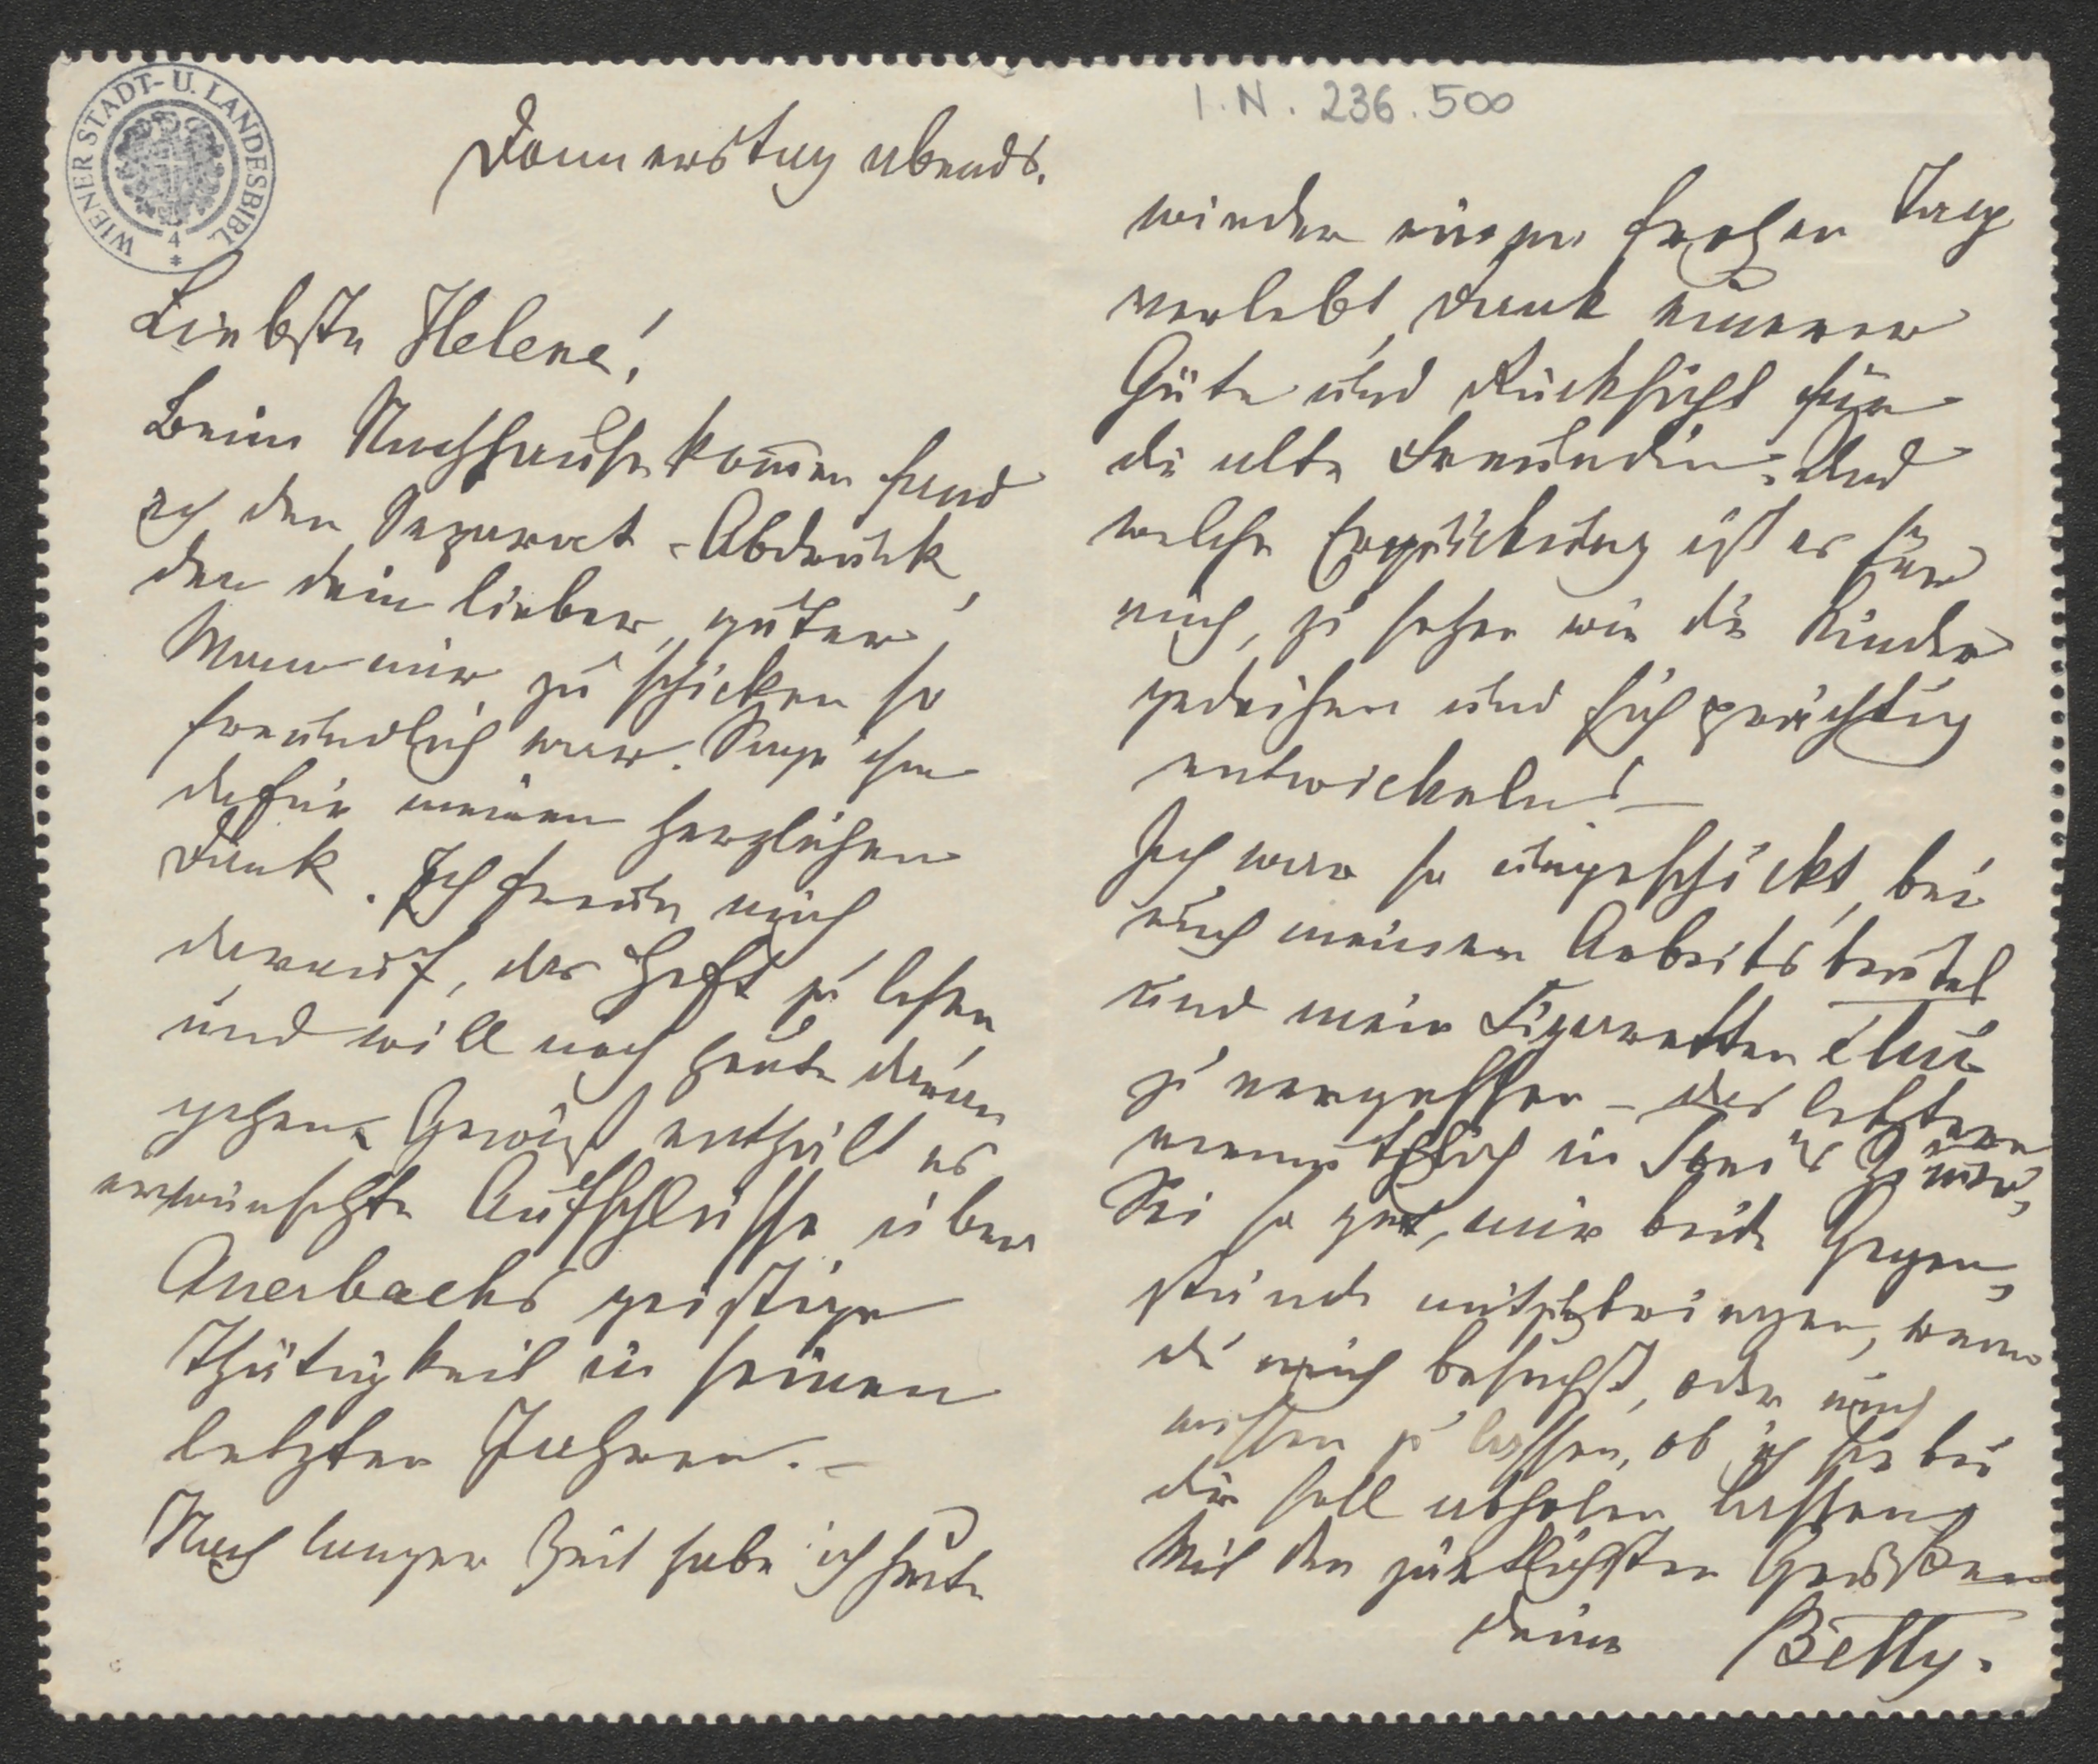 WIENER STADT- U. LANDESBIBL.
4
I.N. 236.500
Donnerstag abends.
Liebste Helene!
Beim Nachhausekommen fand
ich den Separat-Abdruck,
den dein lieber, guter
Mann mir zu schicken so
freundlich war. Sage ihm
dafür meinen herzlichen
Dank. Ich freute mich
darauf, das Heft zu lesen
und will noch heute daran
gehen. Gewiß enthält es
erwünschte Aufschlüsse über
Auerbachs geistige
Thätigkeit in seinen
letzten Jahren. –
Nach langer Zeit habe ich heute
wieder einen frohen Tag
verlebt, Dank eurer
Güte und Rücksicht für
die alte Freundin. Und
welche Erquickung ist es für
mich, zu sehen wie die Kinder
gedeihen und sich prächtig
entwickeln! –
Ich war so ungeschickt, bei
euch meinen Arbeitsbeutel
und mein Cigarretten Etui
zu vergessen – das letztere
vermuthlich in Zimmer,
Sei so gut, mir beide Gegen-
stände mitzubringen, wenn
du mich besuchst, oder mich
wissen zu lassen, ob ich sie bei
dir soll abholen lassen.
Mit den zärtlichsten Grüßen
deine Betty.